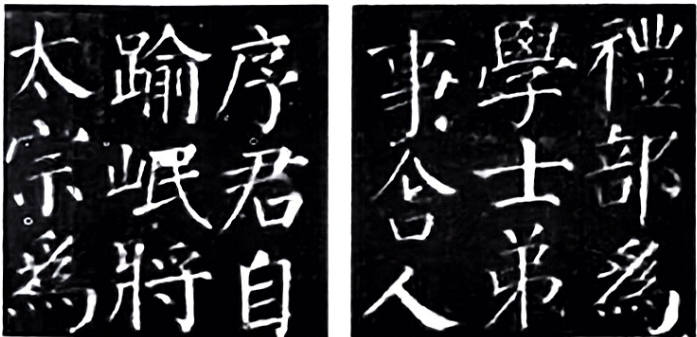 禮部爲
學士弟
事舍人
序君自
踰岷將
太宗爲